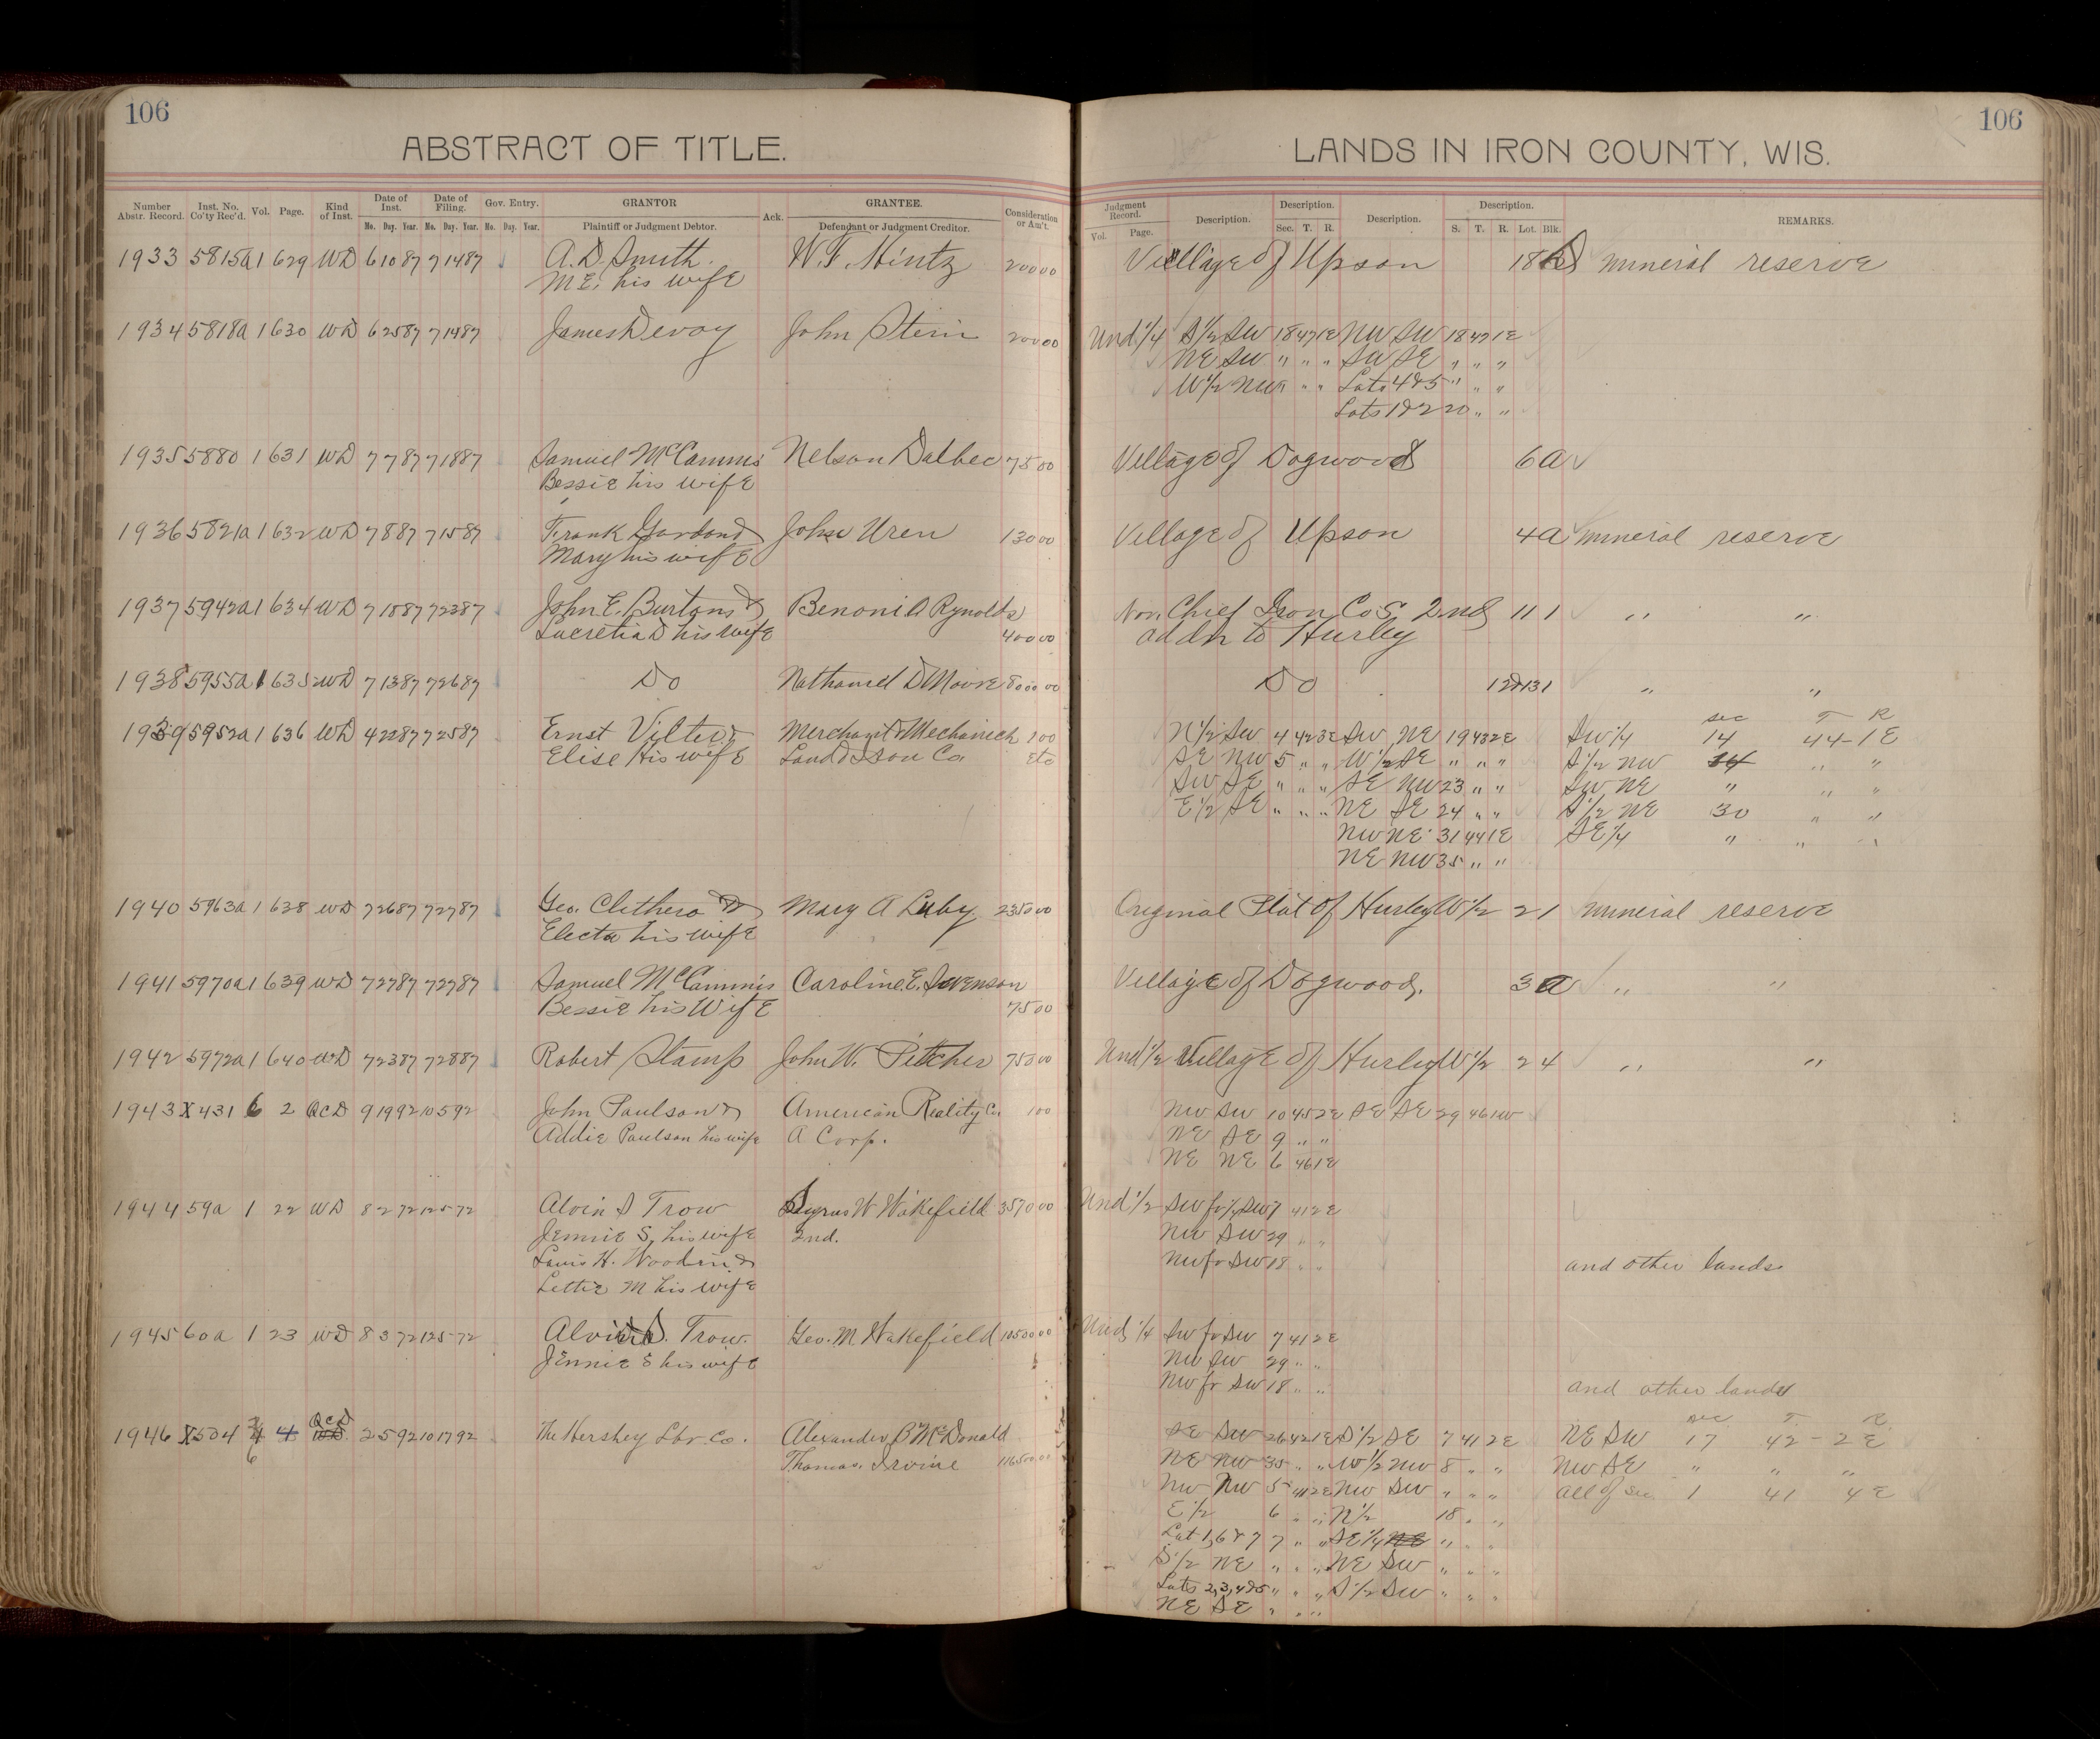 106
106
ABSTRACT OF TITLE.
LANDS IN IRON COUNTY, WIS.
Number Abstr. Record. Inst. No. Co'ty Rec'd. Vol. Page. Kind of Inst. Date of Inst. Date of Filing. Gov. Entry. GRANTOR Ack. GRANTEE. Consideration or Am't.
Mo. Day. Year. Mo. Day. Year. Mo. Day. Year. Plaintiff or Judgment Debtor. Defendant or Judgment Creditor.
Judgment Record. Description. Description. Description. Description. REMARKS.
Vol. Page. Sec. T. R. S. T. R. Lot. Blk.
1933 5815a 1 629 WD 6 10 87 7 14 87 A. D. Smith W. F. Hintz 200 00 Village of Upson 18 mineral reserve
M E, his wife
1934 5818a 1 630 WD 6 25 87 7 14 87 James Devoy John Stein 200 00 Und 1/4 S 1/2 SW 18 47 1E NW SW 18 47 1E
NE SW " " " SW SE " " "
W 1/2 NW " " " Lots 4 & 5 " " "
Lots 1 & 2 20 " "
1935 5880 1 631 WD 7 7 87 7 18 87 Samuel McCammis Nelson Dalbec 75 00 Village of Dogwood 6 a
Bessie his wife
1936 5821a 1 632 WD 7 8 87 7 15 87 Frank John Uren 130 00 Village of Upson 4 a mineral reserve
Mary his wife
1937 5942a 1 634 WD 7 18 87 7 23 87 John E. Burton & Benoni A Rynolds Nor. Chief Iron Co S. 2nd 11 1 " "
Lucretia D his wife 400 00 addn to Hurley
1938 5955a 1 635 WD 7 13 87 7 26 87 Do Nathaniel D Moore 800 00 Do 12 & 13 1 " "
sec T R
1939 5952a 1 636 WD 4 22 87 7 25 87 Ernst Merchant & Mechanich 100 N 1/2 SW 4 42 3E SW NE 19 43 2E SW 1/4 14 44-1E
Elise His wife Land & Iron Co etc SE NW 5 " " W 1/2 SE " " " S 1/2 NW " "
SW SE " " " SE NW 23 " " SW NE " " "
E 1/2 SE " " " NE SE 24 " " S 1/2 NE 30 " "
NW NE 31 44 1E SE 1/4 " " "
NE NW 35 " "
1940 5963a 1 638 WD 7 26 87 7 27 87 Geo. Clithero & Mary A Luby 2350 00 Original Plat of Hurley W 1/2 2 1 mineral reserve
Electa his wife
1941 5970a 1 639 WD 7 27 87 7 27 87 Samuel McCammis Caroline E. Swenson Village of Dogwood. 3 a " "
Bessie his Wife 75 00
1942 5972a 1 640 WD 7 23 87 7 28 87 Robert Stamp John W. Pitcher 750 00 Und 1/2 Village of Hurley W 1/2 2 4 " "
1943 X431 6 2 QCD 9 19 92 10 5 92 John Paulson & American Reality Co. 100 NW SW 10 45 2E SE SE 29 46 1W
Addie Paulson his wife A Corp. NE SE 9 " "
NE NE 6 46 1E
1944 59a 1 22 WD 8 2 72 12 5 72 Alvin S Trow Syrus W Wakefield 3570 00 Und 1/2 SW fr 1/4 SW 7 41 2E
Jennie S, his wife 2nd. NW SW 29 " "
Louis H. Woodin & NW fr SW 18 " " and other lands
Lettie M his wife
1945 60a 1 23 WD 8 3 72 12 5 72 Alvin S. Trow. Geo. M. Wakefield 1050 00 Und 1/4 SW fr SW 7 41 2E
Jennie S his wife NW SW 29 " "
NW fr SW 18 " " and other lands
sec T. R.
1946 X504 6 4 QCD 2 5 92 10 17 92 The Hershey Lbr. Co. Alexander B McDonald SE SW 26 42 1E S 1/2 SE 7 41 2E NE SW 17 42-2E
Thomas Irvine 116500 00 NE NW 35 " " W 1/2 NW 8 " " NW SE " " "
NW NW 5 41 2E NW SW " " " all of sec 1 41 4E
E 1/2 6 " " N 1/2 18 " "
Lot 1, 6 & 7 7 " " SE 1/4 " " "
S 1/2 NE " " " NE SW " " "
Lots 2,3,4&5 " " " S 1/2 SW " " "
NE SE " " "